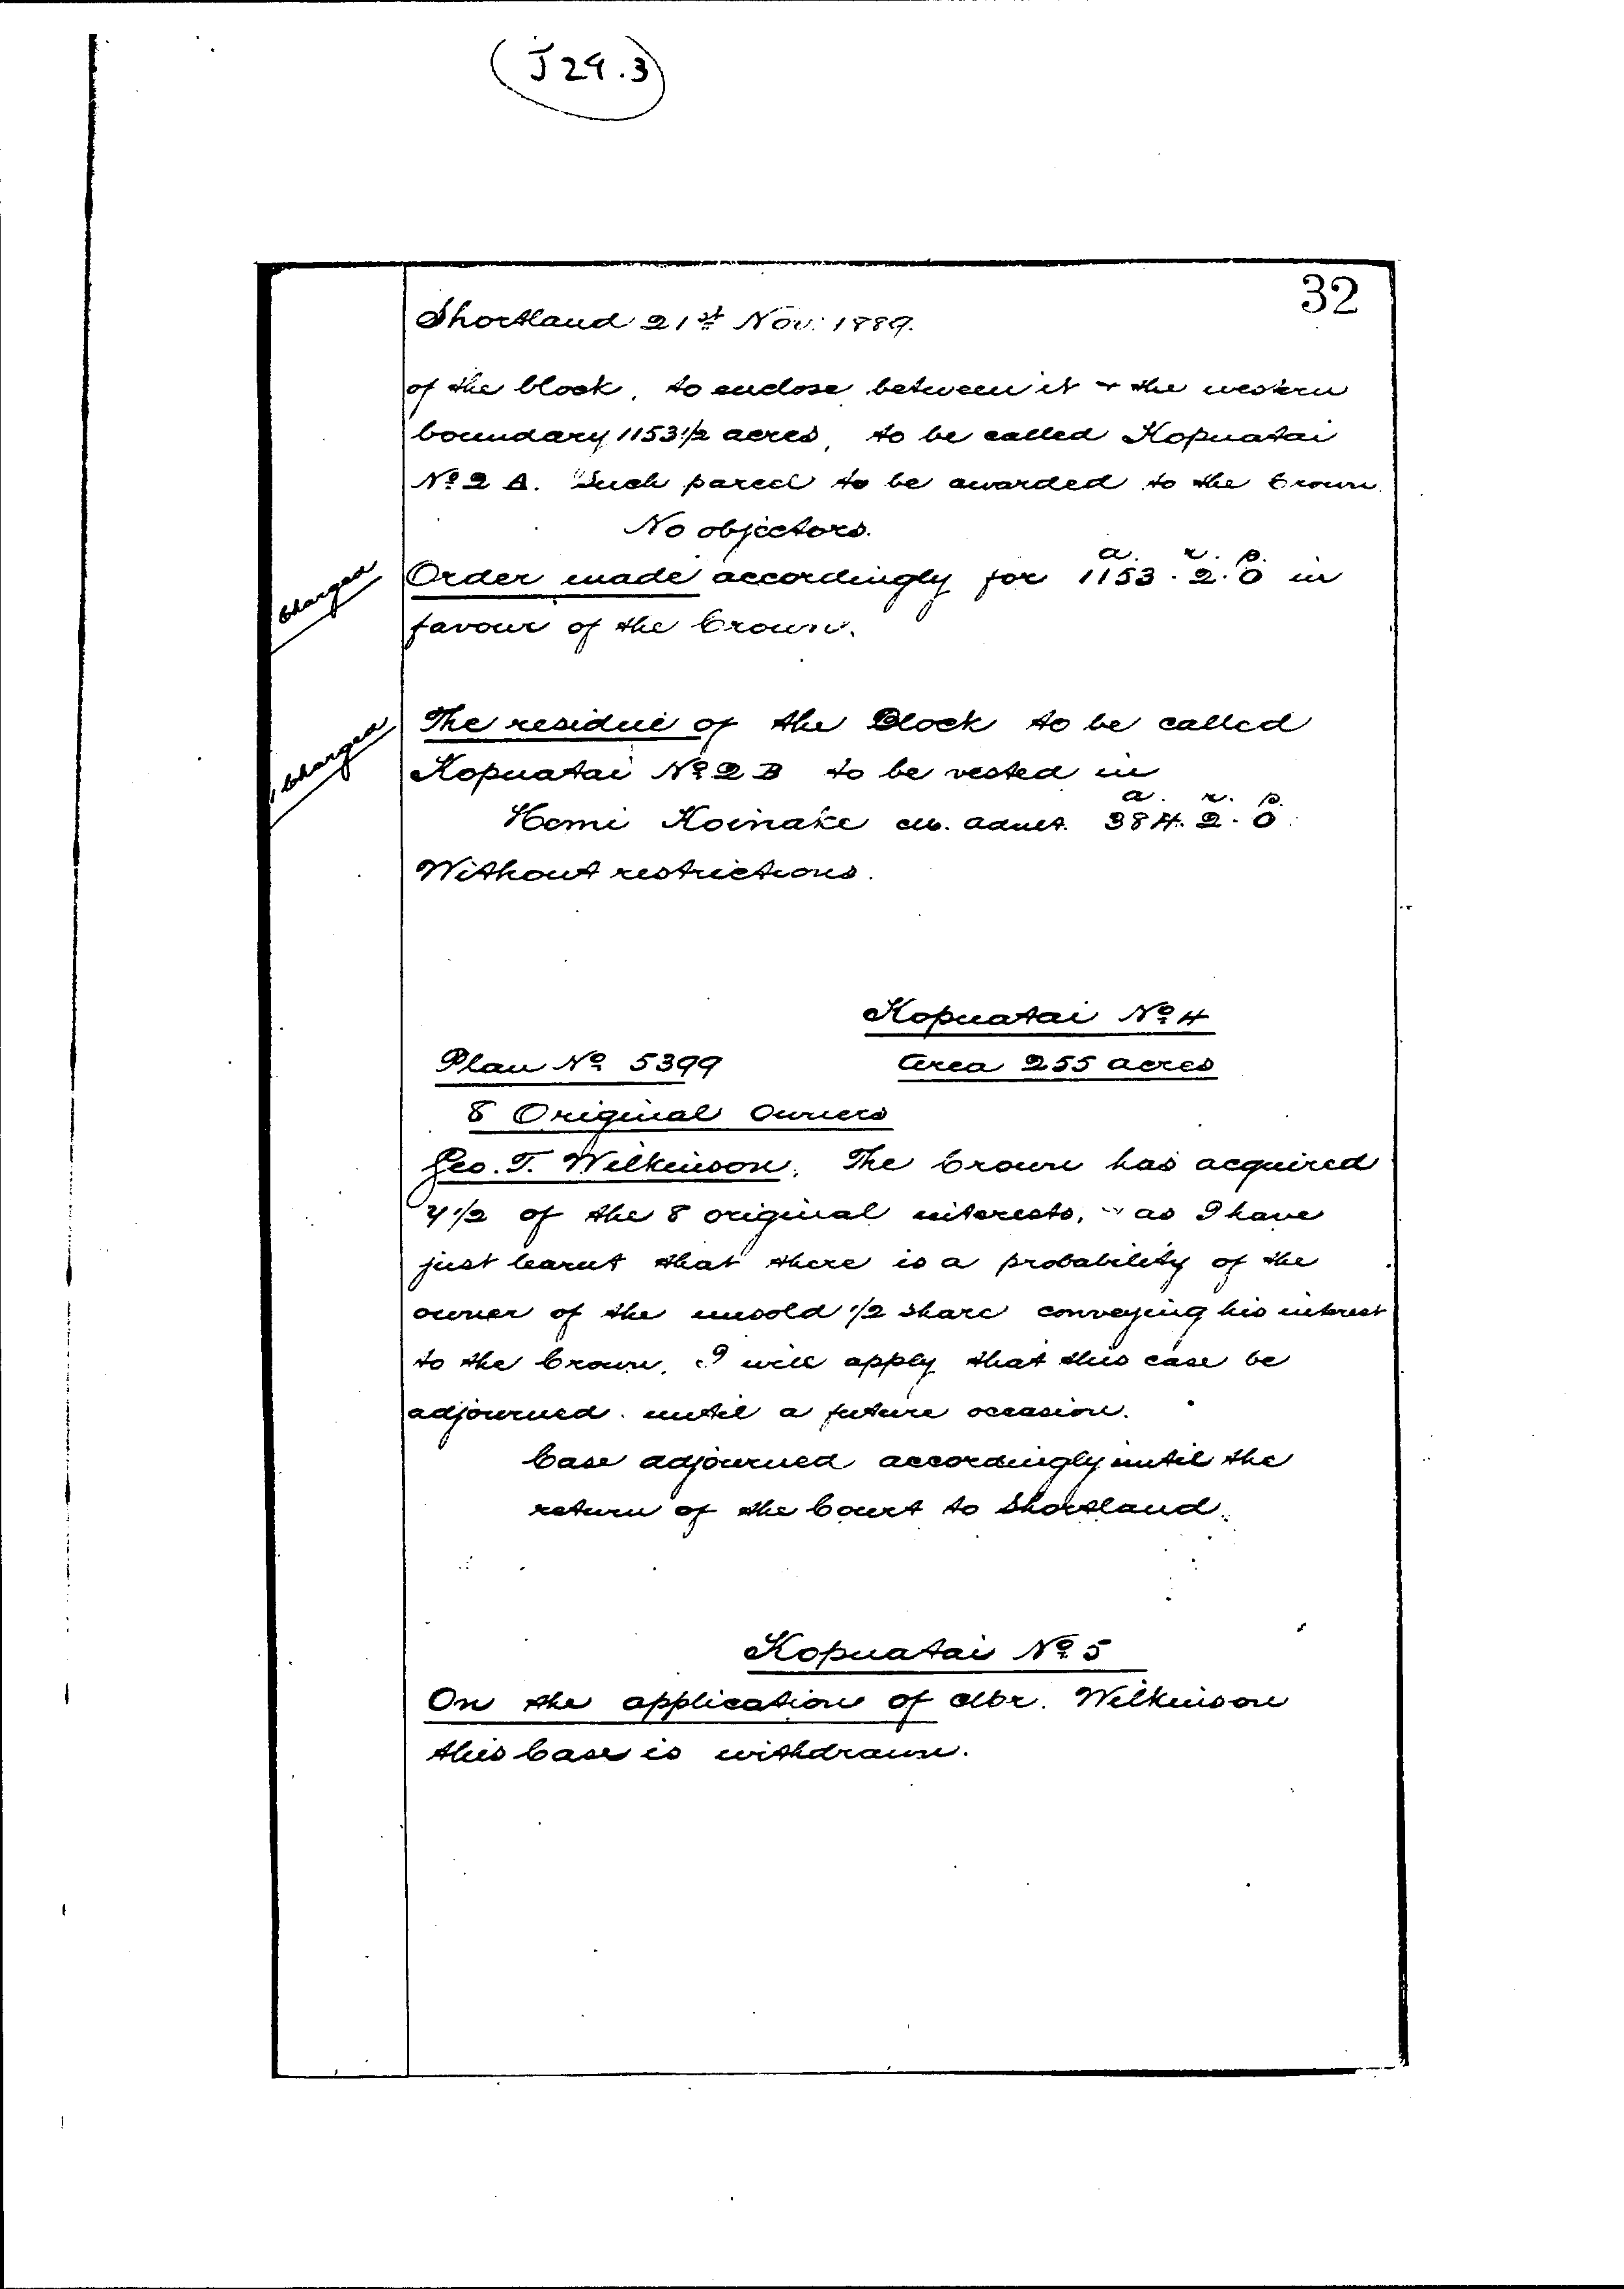 (J 29.3)
32
Shortland 21st Nov: 1889.
of the block, to enclose between it & the western
boundary 1153 1/2 acres, to be called Kopuatai
No 2 A. Such parcel to be awarded to the Crown.
No objectors.
a. r. p.
Charged
Order made accordingly for 1153. 2. 0 in
favour of the Crown.
Charged
The residue of the Block to be called
Kopuatai No 2 B to be vested in
a. r. p.
Hemi Koinake m. adult. 384. 2. 0.
Without restrictions.
Kopuatai No 4
Plan No 5399 Area 255 acres
8 Original Owners
Geo. T. Wilkinson. The Crown has acquired
7 1/2 of the 8 original interests, & as I have
just learnt that there is a probability of the
owner of the unsold 1/2 share conveying his interest
to the Crown, I will apply that this case be
adjourned until a future occasion.
Case adjourned accordingly until the
return of the Court to Shortland.
Kopuatai No 5
On the application of Mr. Wilkinson
this Case is withdrawn.